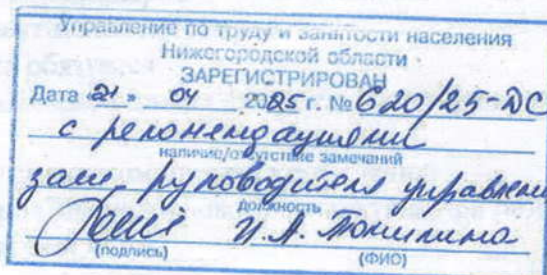 Управление по труду и занятости населения
Нижегородской области
ЗАРЕГИСТРИРОВАН
Дата «21» 04 2025 г. № 620/25-ДС
с рекомендациями
наличие/отсутствие замечаний
зам руководителя управлени
должность
И.А.
(подпись) (ФИО)